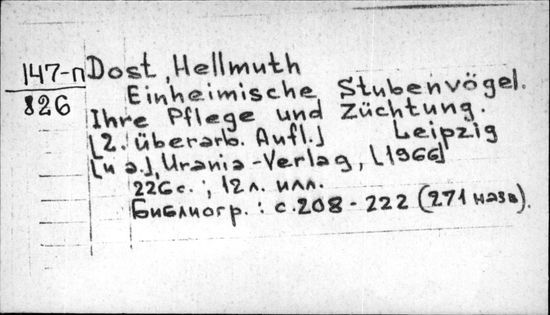 147-п Dost, Hellmuth
826 Einheimische Stubenvögel.
Ihre Pflege und Züchtung.
[2. überarb. Aufl.] Leipzig
[u a.], Urania-Verlag, [1966]
226 с.; 12 л. илл.
Библиогр.: с. 208-222 (271 назв).